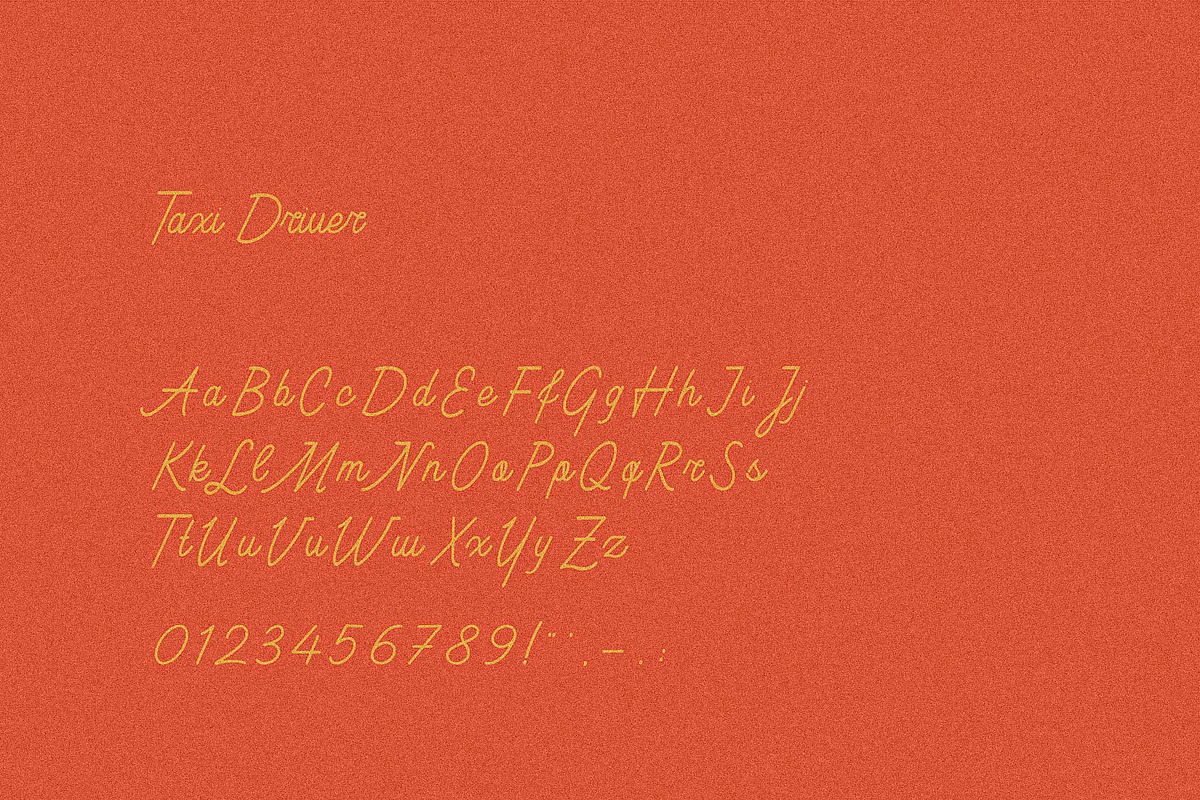 Taxi Driver
Aa Bb Cc Dd Ee Ff Gg Hh Ii Jj
Kk Ll Mm Nn Oo Pp Qq Rr Ss
Tt Uu Vv Ww Xx Yy Zz
0123456789!"',-.: